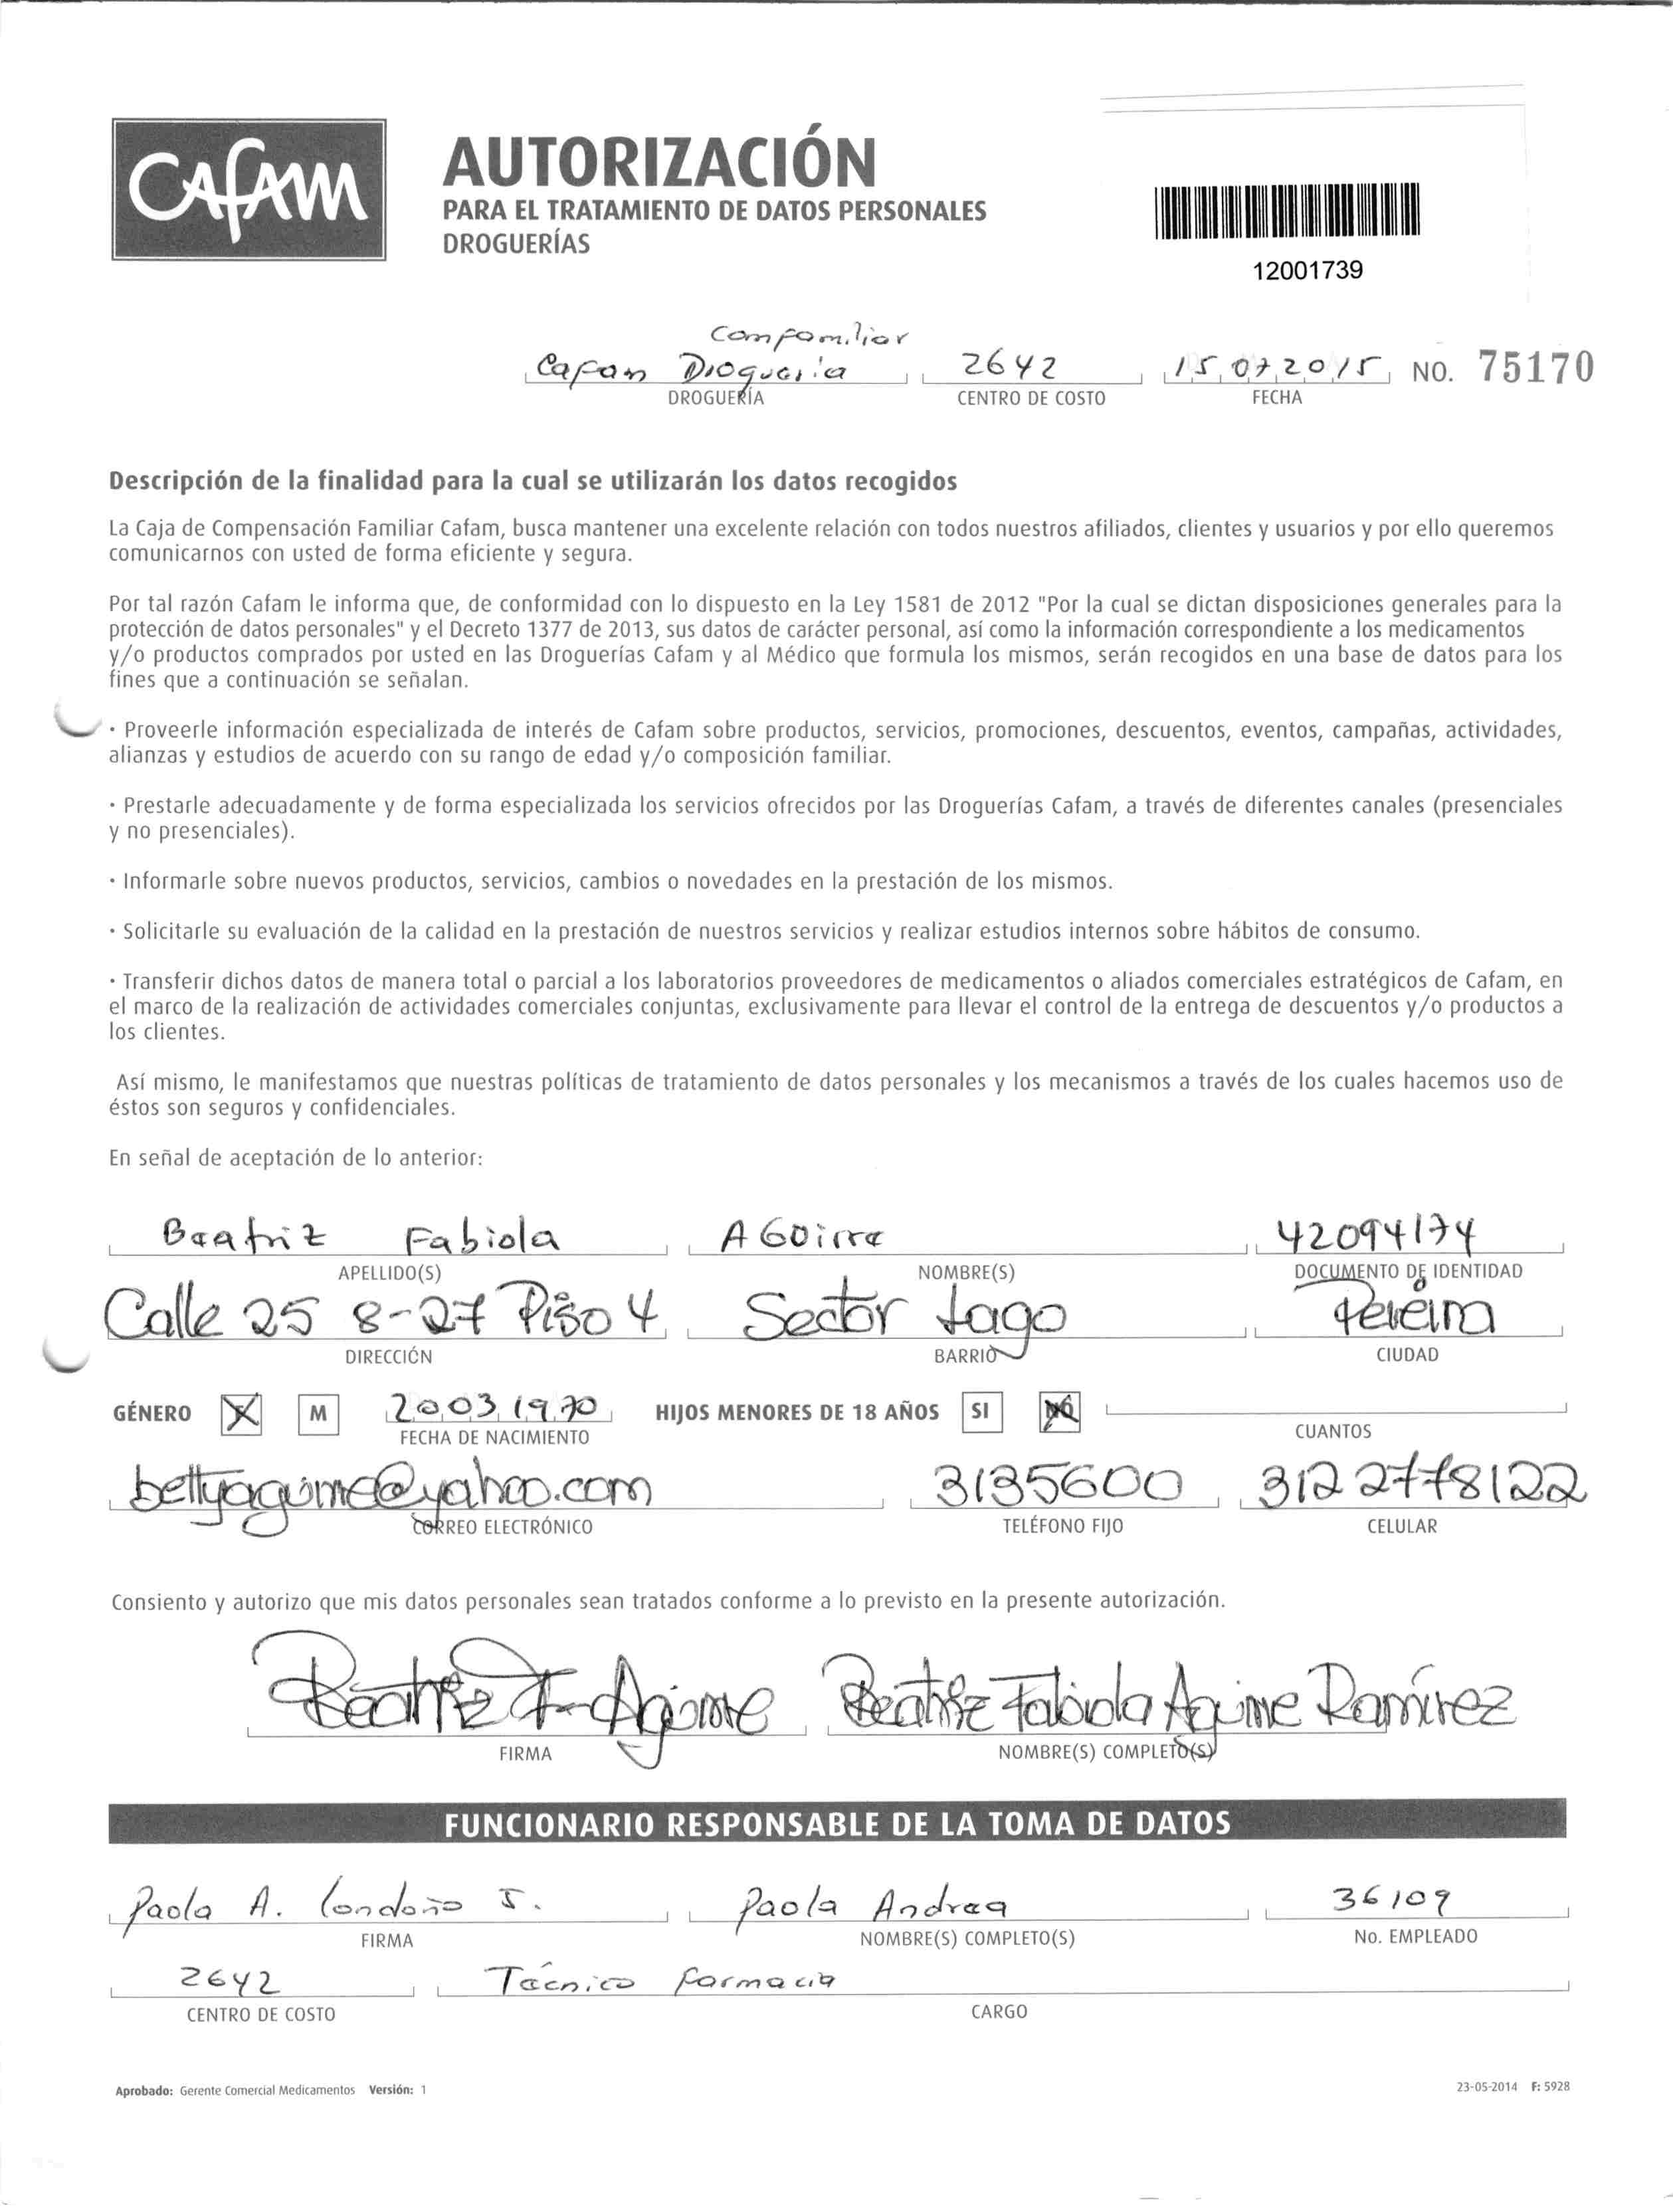 CAFAM
AUTORIZACIÓN
PARA EL TRATAMIENTO DE DATOS PERSONALES
DROGUERÍAS
12001739
Comfamiliar
Cafam Drogueria 2642 15 07 2015 NO. 75170
DROGUERÍA CENTRO DE COSTO FECHA
Descripción de la finalidad para la cual se utilizarán los datos recogidos
La Caja de Compensación Familiar Cafam, busca mantener una excelente relación con todos nuestros afiliados, clientes y usuarios y por ello queremos
comunicarnos con usted de forma eficiente y segura.
Por tal razón Cafam le informa que, de conformidad con lo dispuesto en la Ley 1581 de 2012 "Por la cual se dictan disposiciones generales para la
protección de datos personales" y el Decreto 1377 de 2013, sus datos de carácter personal, así como la información correspondiente a los medicamentos
y/o productos comprados por usted en las Droguerías Cafam y al Médico que formula los mismos, serán recogidos en una base de datos para los
fines que a continuación se señalan.
· Proveerle información especializada de interés de Cafam sobre productos, servicios, promociones, descuentos, eventos, campañas, actividades,
alianzas y estudios de acuerdo con su rango de edad y/o composición familiar.
· Prestarle adecuadamente y de forma especializada los servicios ofrecidos por las Droguerías Cafam, a través de diferentes canales (presenciales
y no presenciales).
· Informarle sobre nuevos productos, servicios, cambios o novedades en la prestación de los mismos.
· Solicitarle su evaluación de la calidad en la prestación de nuestros servicios y realizar estudios internos sobre hábitos de consumo.
· Transferir dichos datos de manera total o parcial a los laboratorios proveedores de medicamentos o aliados comerciales estratégicos de Cafam, en
el marco de la realización de actividades comerciales conjuntas, exclusivamente para llevar el control de la entrega de descuentos y/o productos a
los clientes.
Así mismo, le manifestamos que nuestras políticas de tratamiento de datos personales y los mecanismos a través de los cuales hacemos uso de
éstos son seguros y confidenciales.
En señal de aceptación de lo anterior:
Beatriz Fabiola AGuirre 42094174
APELLIDO(S) NOMBRE(S) DOCUMENTO DE IDENTIDAD
Calle 25 8-27 Piso 4 Sector Lago Pereira
DIRECCIÓN BARRIO CIUDAD
GÉNERO F M 20 03 1970 HIJOS MENORES DE 18 AÑOS SI NO
FECHA DE NACIMIENTO CUANTOS
bettyaguirre@yahoo.com 3135600 312 2778122
CORREO ELECTRÓNICO TELÉFONO FIJO CELULAR
Consiento y autorizo que mis datos personales sean tratados conforme a lo previsto en la presente autorización.
Beatriz F. Aguirre Beatriz Fabiola Aguirre Ramírez
FIRMA NOMBRE(S) COMPLETO(S)
FUNCIONARIO RESPONSABLE DE LA TOMA DE DATOS
Paola A. Londoño J. Paola Andrea 36109
FIRMA NOMBRE(S) COMPLETO(S) No. EMPLEADO
2642 Tecnico farmacia
CENTRO DE COSTO CARGO
Aprobado: Gerente Comercial Medicamentos Versión: 1 23-05-2014 F: 5928